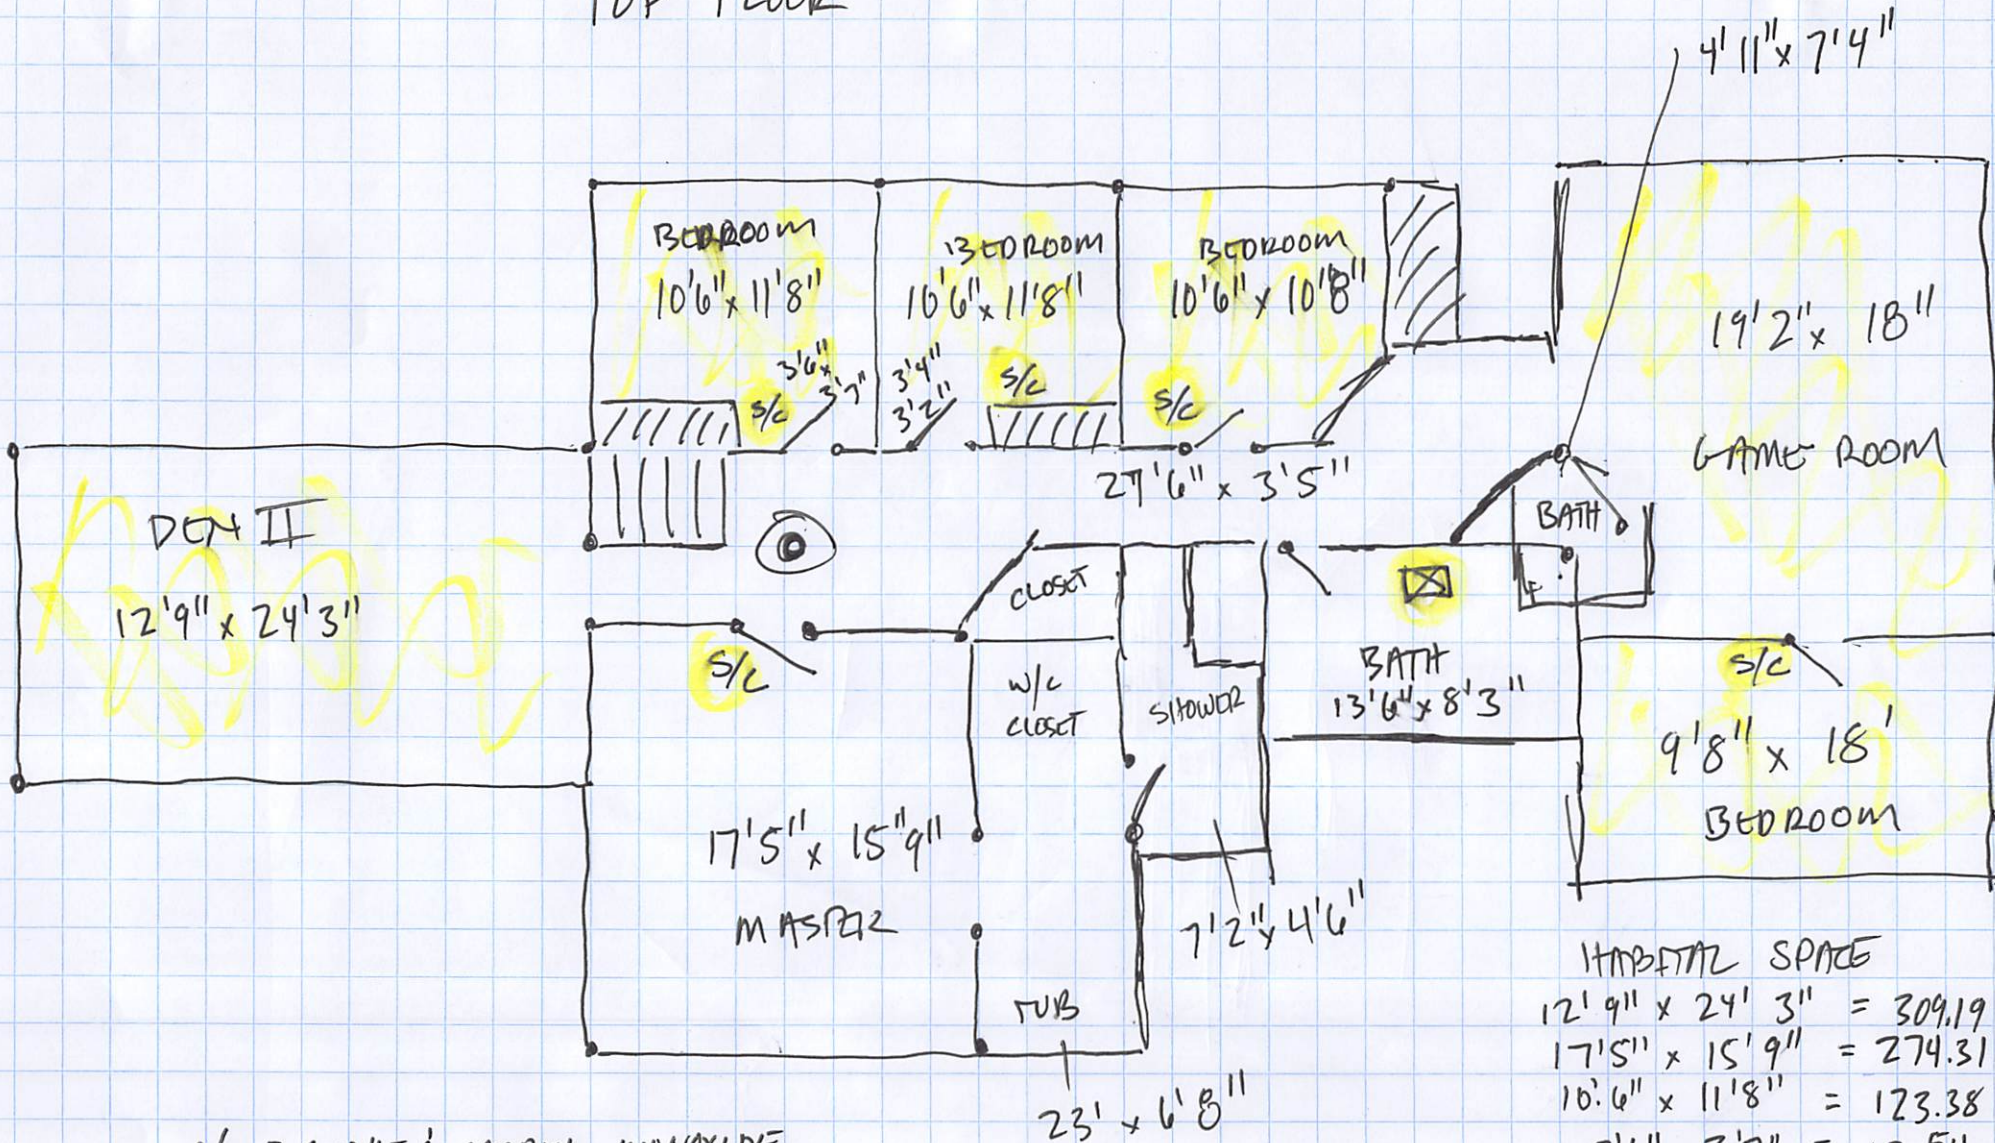 TOP FLOOR
4'11" x 7'4"
BEDROOM
10'6" x 11'8"
BEDROOM
10'6" x 11'8"
BEDROOM
10'6" x 10'8"
19'2" x 18"
GAME ROOM
S/C
3'6" x
3'7"
3'4"
3'2"
S/C
S/C
27'6" x 3'5"
DEN II
12'9" x 24'3"
CLOSET
BATH
S/C
W/C
CLOSET
SHOWER
BATH
13'6" x 8'3"
S/C
9'8" x 18'
BEDROOM
17'5" x 15"9"
MASTER
7'2" x 4'6"
TUB
23' x 6'8"
HABITAL SPACE
12'9" x 24'3" = 309.19
17'5" x 15'9" = 274.31
10'6" x 11'8" = 123.38